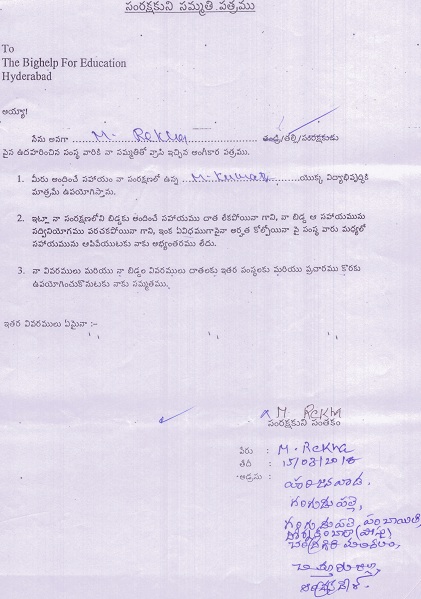 సంరక్షకుని సమ్మతి పత్రము
To
The Bighelp For Education
Hyderabad
అయ్యా!
నేను అనగా M. Rekha తండ్రి/తల్లి/సంరక్షకుడు
పైన ఉదహరించిన సంస్థ వారికి నా సమ్మతితో వ్రాసి ఇచ్చిన అంగీకార పత్రము.
1. మీరు అందించే సహాయం నా సంరక్షణలో ఉన్న M. Kumar యొక్క విద్యాభివృద్ధికి
మాత్రమే ఉపయోగిస్తాను.
2. ఇట్లా నా సంరక్షణలోని బిడ్డకు అందించే సహాయము దాత లేకపోయినా గాని, నా బిడ్డ ఆ సహాయమును
సద్వినియోగము పరచకపోయినా గాని, ఇంక ఏవిధముగానైనా అర్హత కోల్పోయినా పై సంస్థ వారు మధ్యలో
సహాయమును ఆపివేయుటకు నాకు అభ్యంతరము లేదు.
3. నా వివరములు మరియు నా బిడ్డల వివరములు దాతలకు ఇతర సంస్థలకు మరియు ప్రచారము కొరకు
ఉపయోగించుకొనుటకు నాకు సమ్మతము.
ఇతర వివరములు ఏమైనా :-
M. Rekha
సంరక్షకుని సంతకం
పేరు : M. Rekha
తేదీ : 15/03/2018
అడ్రసు : హరిజనవాడ.
గంగుడుపల్లె,
గంగుడుపల్లె, పంచాయితి
చంద్రగిరి మండలం,
చిత్తూరు జిల్లా,